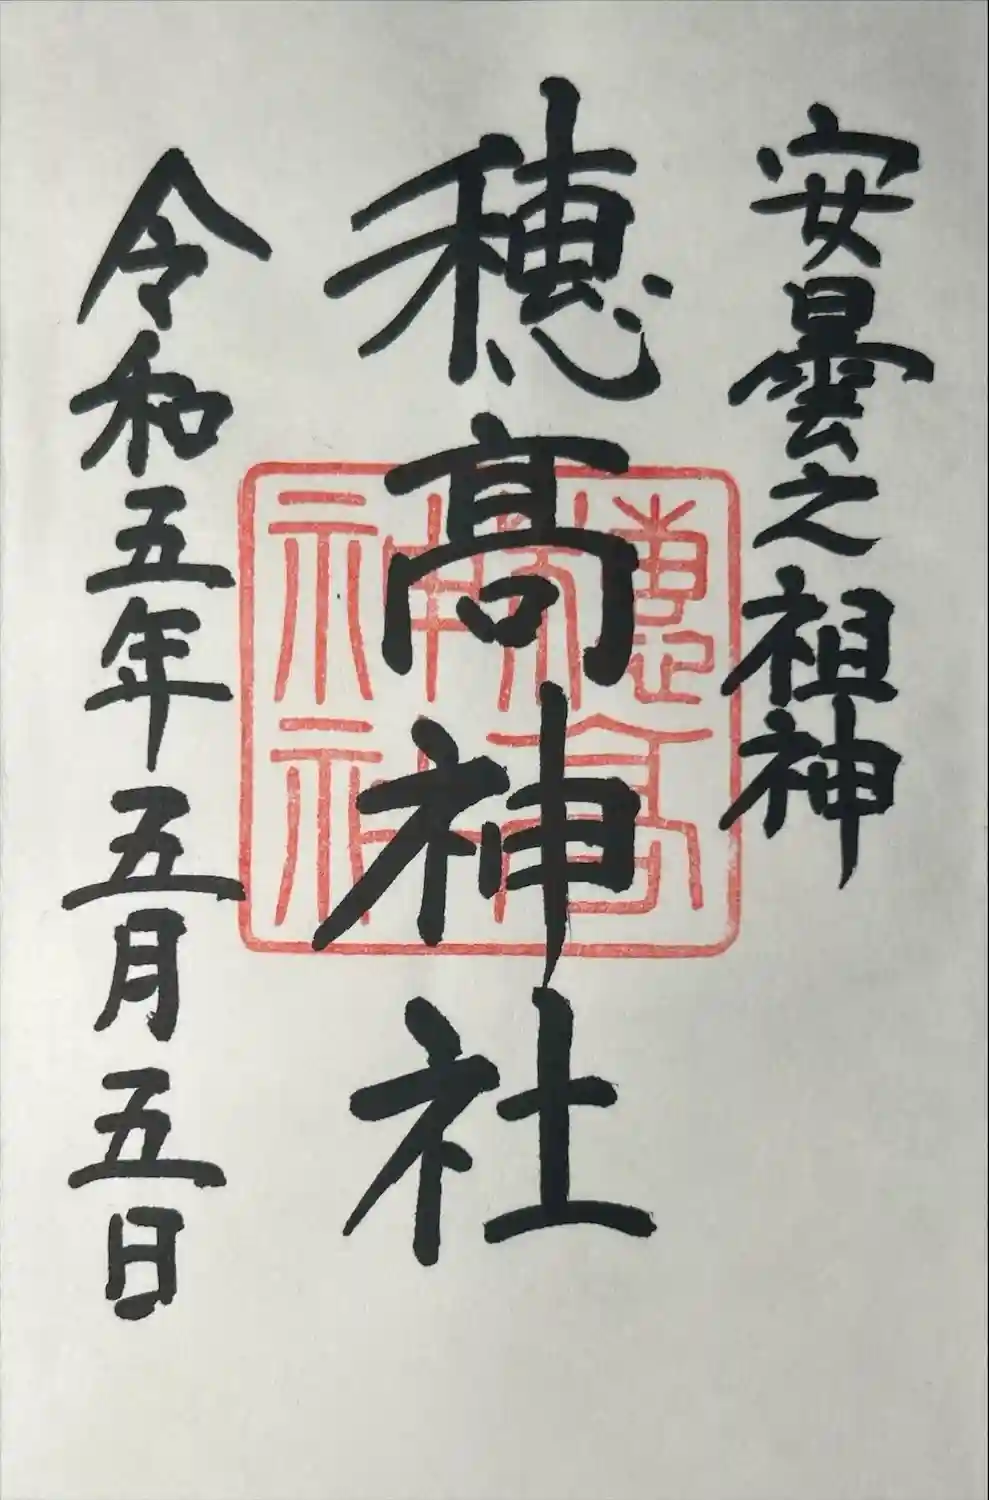 安曇之祖神
穂髙神社
令和五年五月五日
穂高
神社